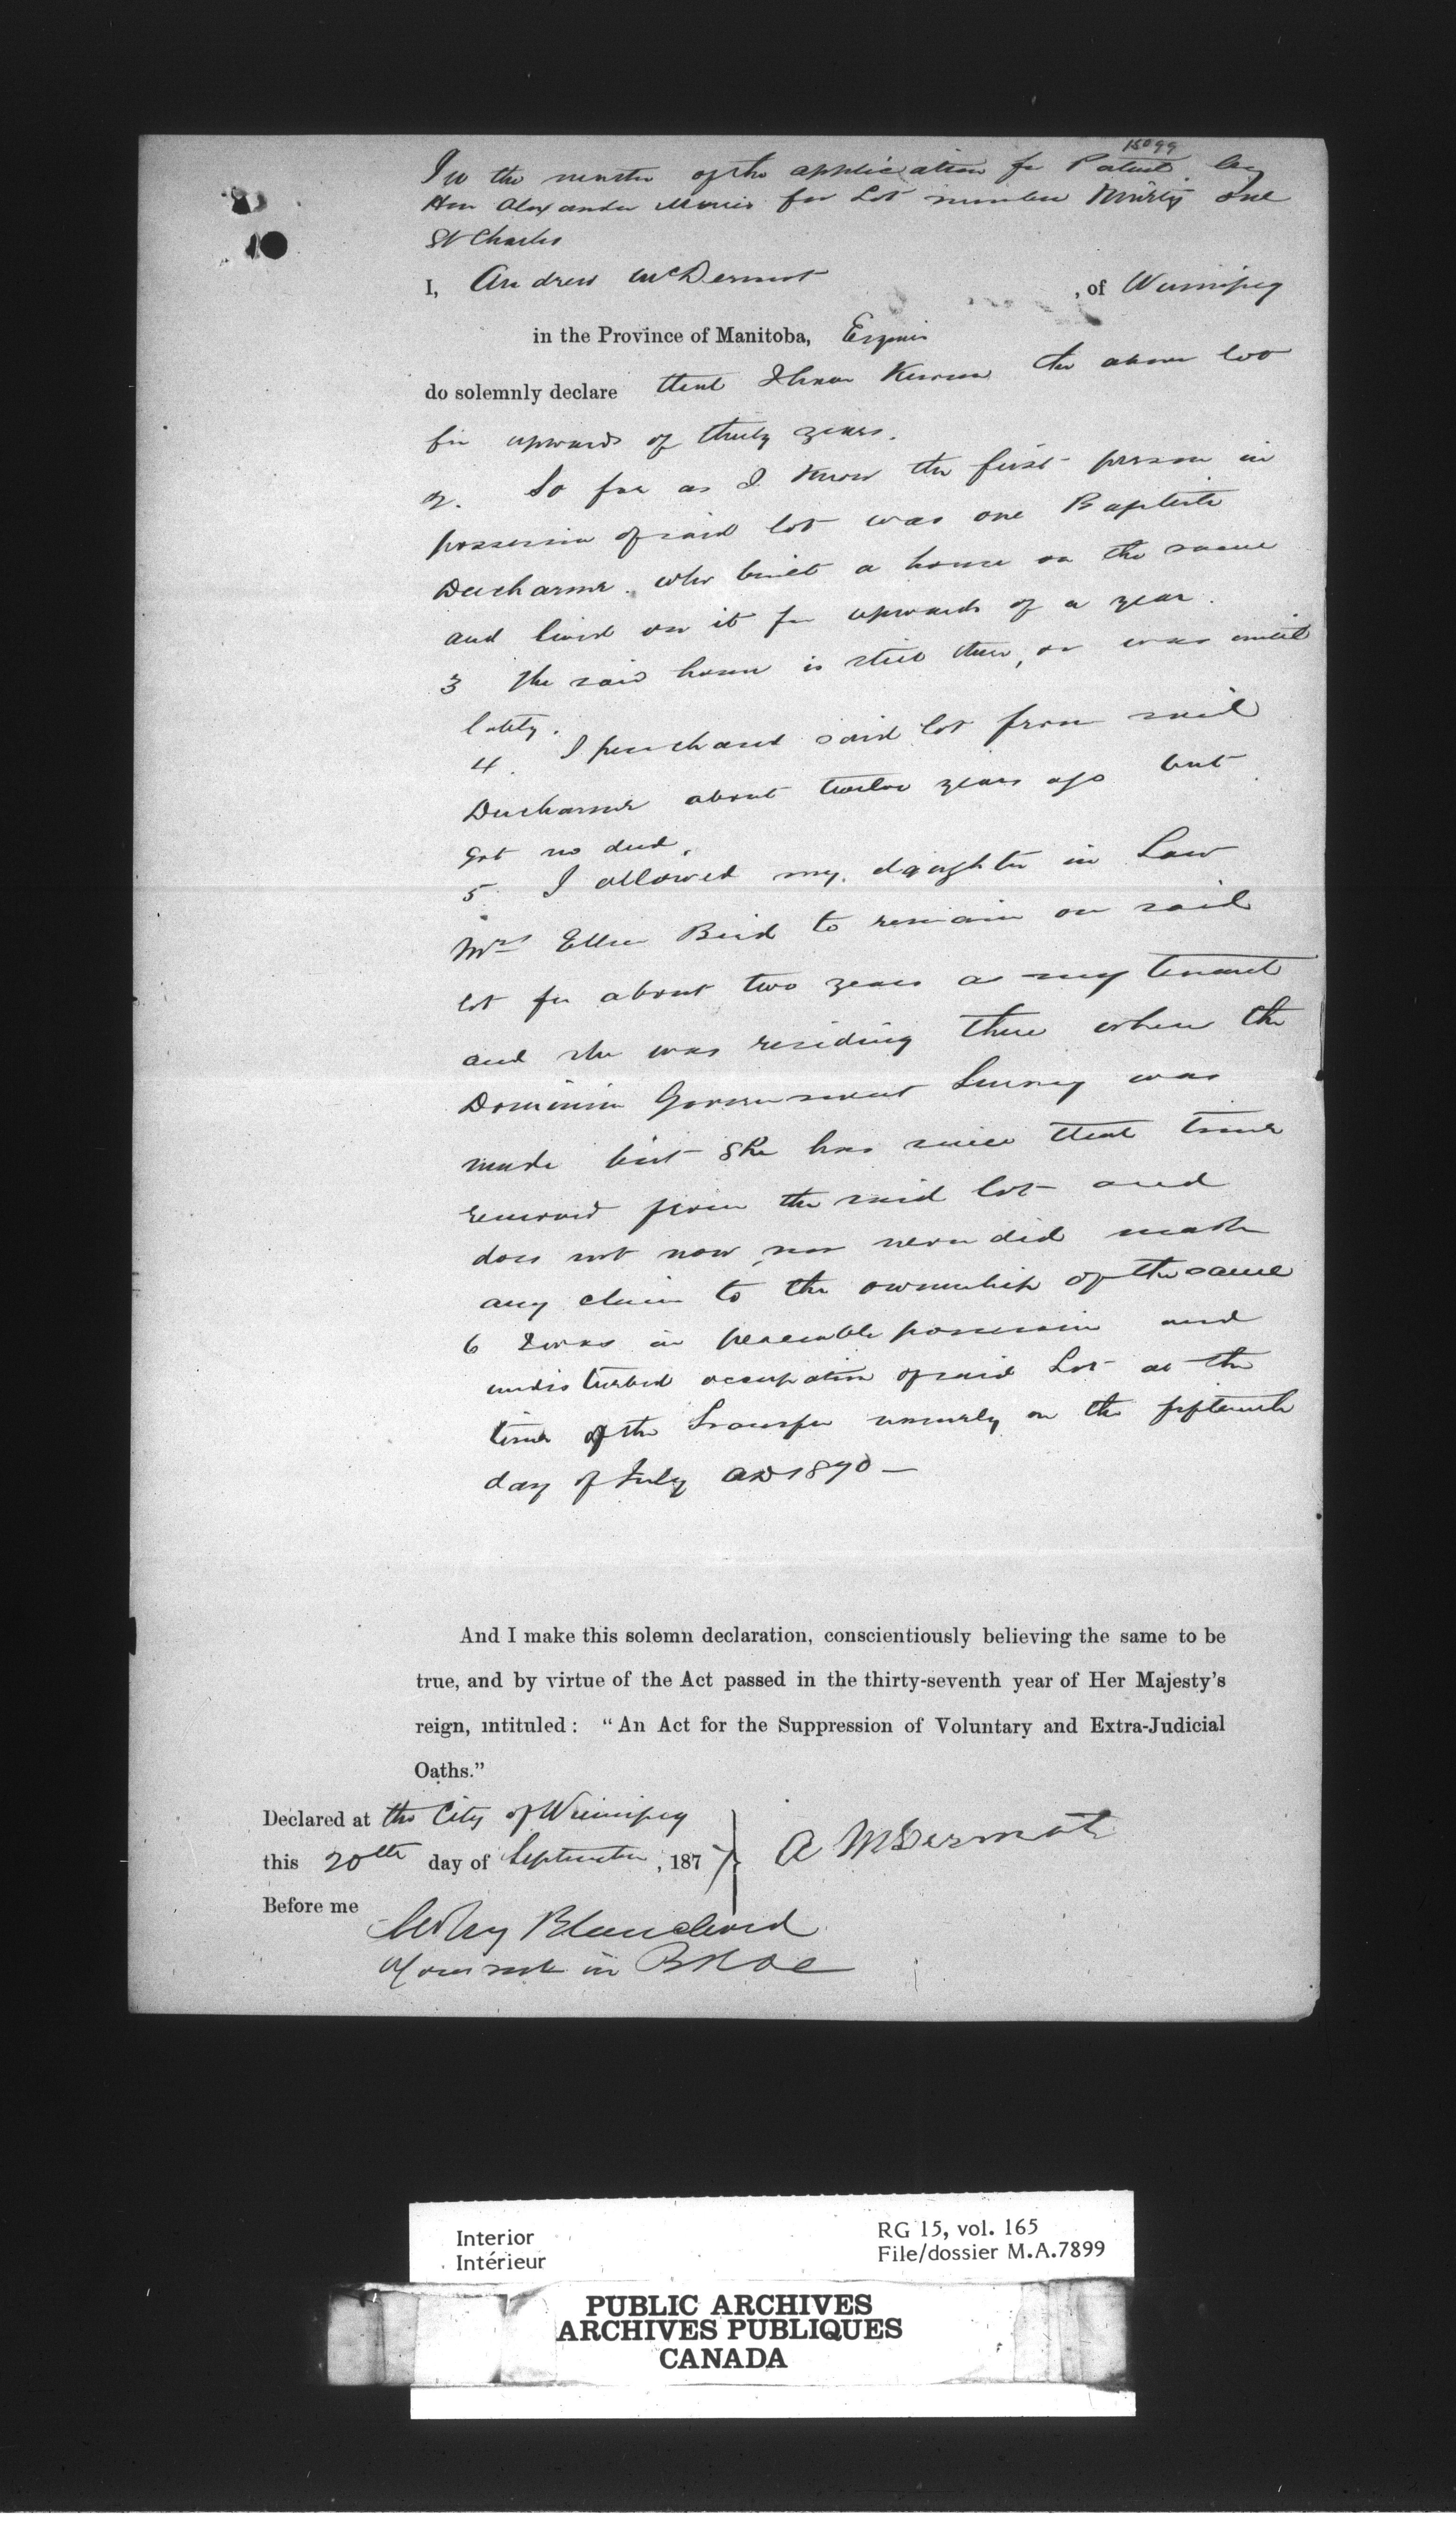 15099
In the matter of the application for Patent by
Hon Alexander Morris for Lot number Ninety one
St Charles
I, Andrew McDermot , of Winnipeg
in the Province of Manitoba, Esquire
do solemnly declare that I have known the above lot
for upwards of thirty years.
2. So far as I know the first person in
possession of said lot was one Baptiste
Ducharme who built a house on the same
and lived on it for upwards of a year.
3 The said house is still there, or was until
lately.
4. I purchased said lot from said
Ducharme about twelve years ago but
got no deed.
5. I allowed my daughter in Law
Mrs Ellen Bird to remain on said
lot for about two years as my tenant
and she was residing there when the
Dominion Government Survey was
made but she has since that time
removed from the said lot and
does not now, nor never did make
any claim to the ownership of the same
6 I was in peaceable possession and
undisturbed occupation of said Lot at the
time of the Transfer namely on the fifteenth
day of July AD 1870 —
And I make this solemn declaration, conscientiously believing the same to be
true, and by virtue of the Act passed in the thirty-seventh year of Her Majesty's
reign, intituled: "An Act for the Suppression of Voluntary and Extra-Judicial
Oaths."
Declared at the City of Winnipeg
this 20th day of September, 1877
A McDermot
Before me
Blanchard
in B R &c
Interior
Intérieur
RG 15, vol. 165
File/dossier M.A.7899
PUBLIC ARCHIVES
ARCHIVES PUBLIQUES
CANADA